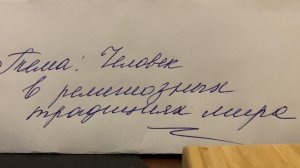 Тема: Человек
в религиозных
традициях мира